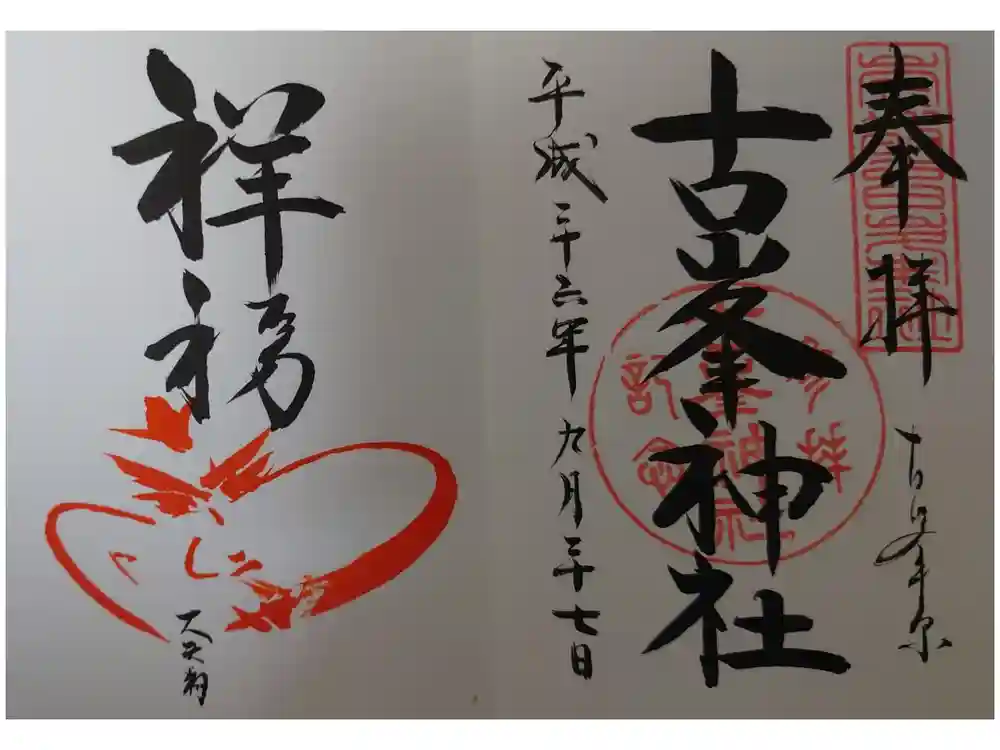 奉拝
古峯原
古峯神社
参拝
古峯神社
記念
平成二十六年九月二十七日
祥福
大天狗